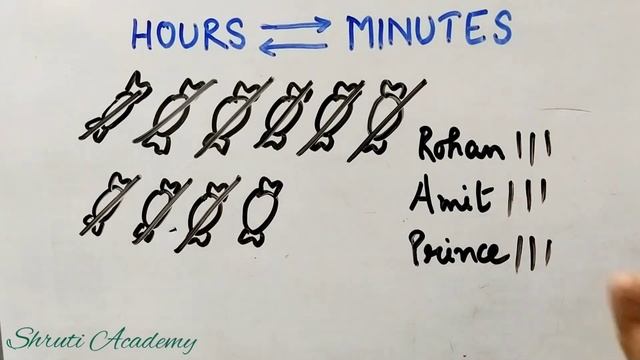 HOURS ⇄ MINUTES
Rohan |||
Amit |||
Prince |||
Shruti Academy